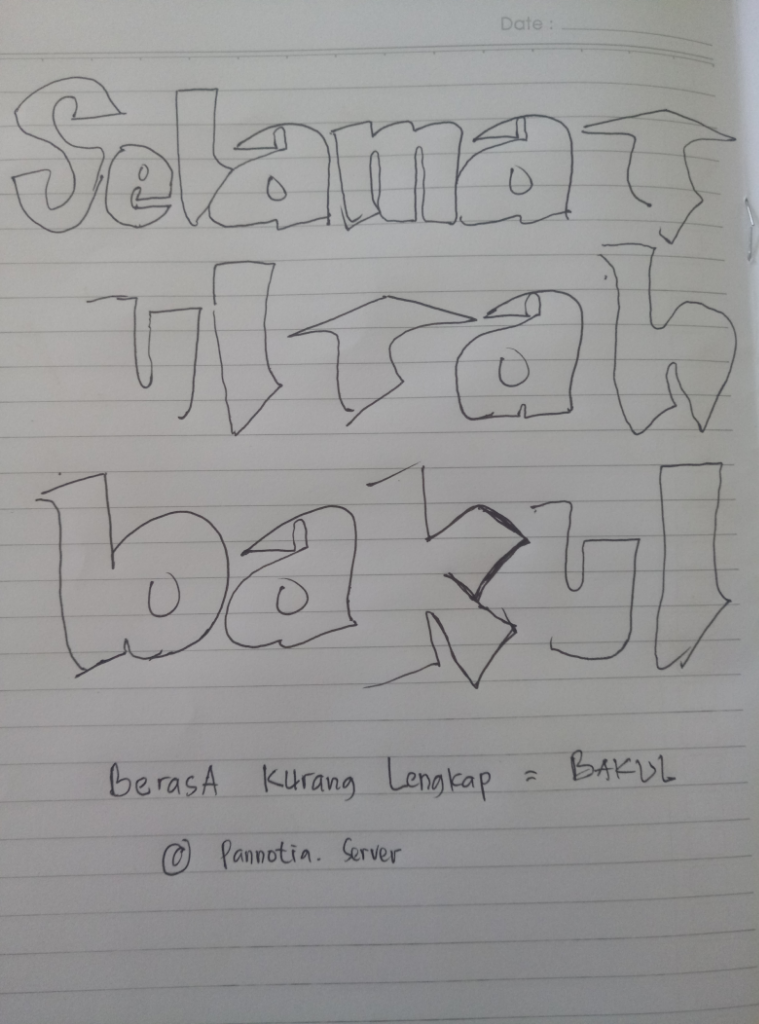 Date :
Selamat
ultah
bakul
BerasA Kurang Lengkap = BAKUL
@ Pannotia. Server